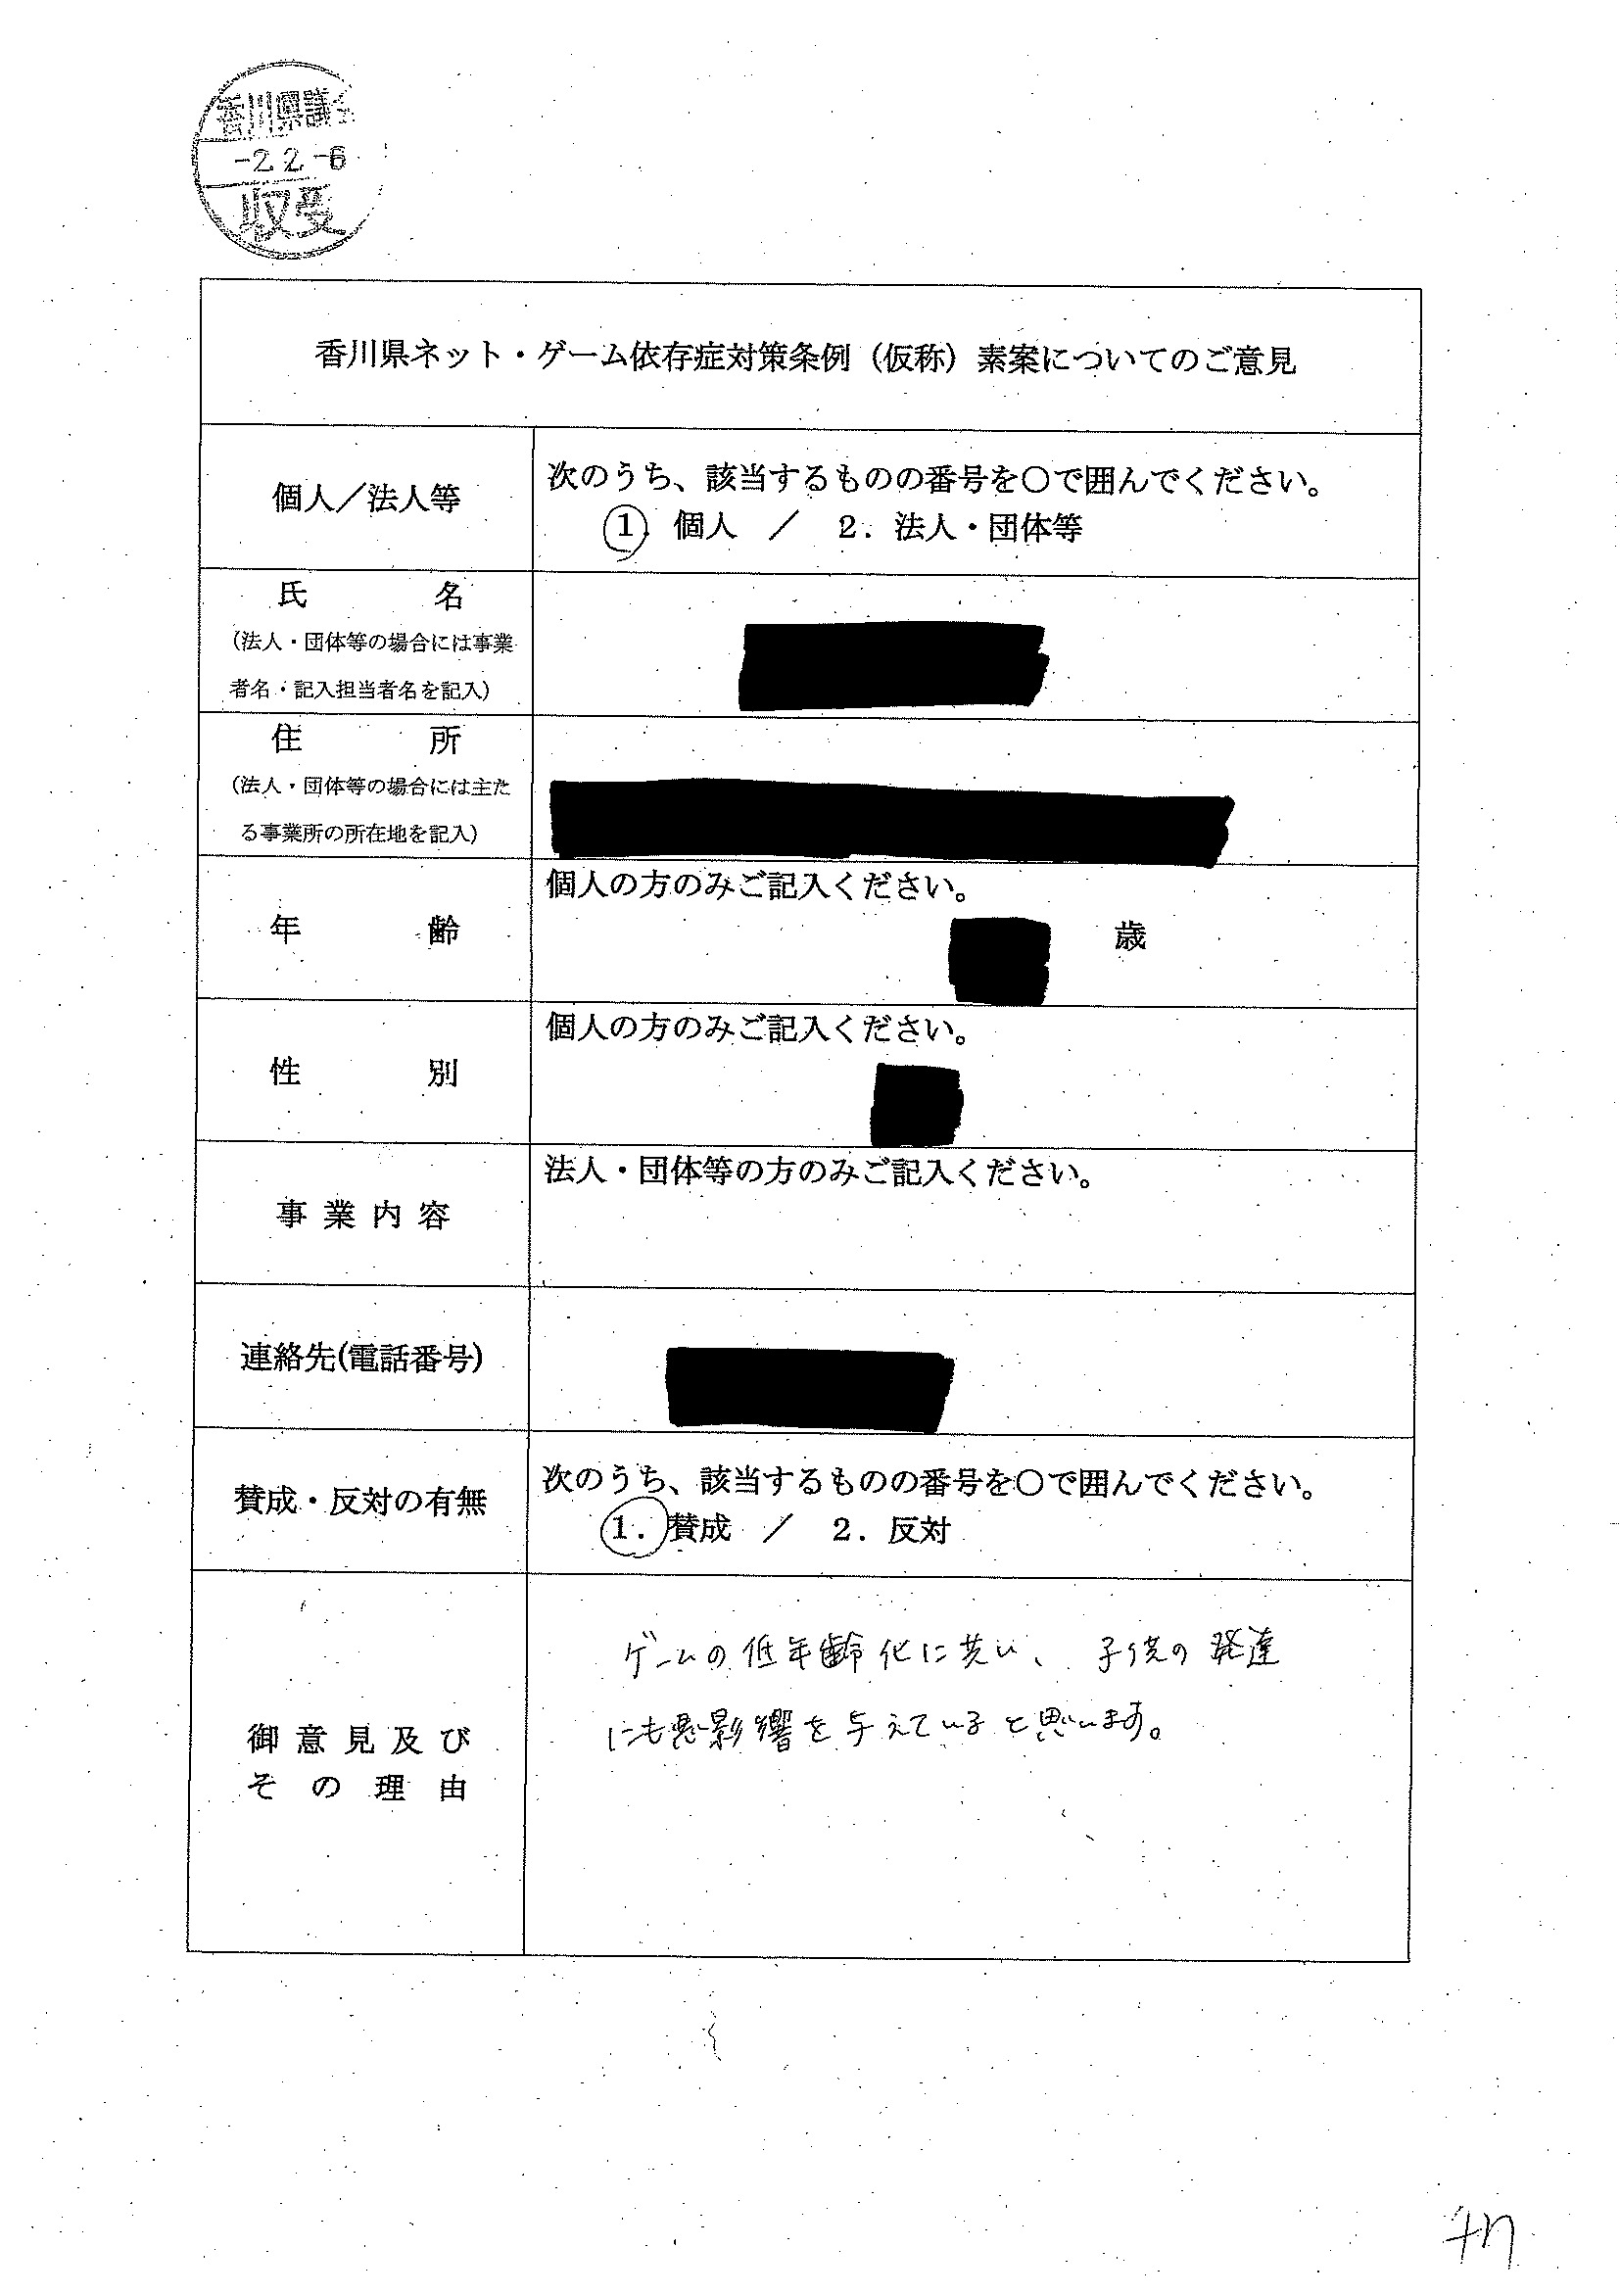 香川県議会
-2.2.-6
収受
香川県ネット・ゲーム依存症対策条例（仮称）素案についてのご意見
個人／法人等
次のうち、該当するものの番号を○で囲んでください。
1. 個人 ／ 2. 法人・団体等
氏名
（法人・団体等の場合には事業
者名・記入担当者名を記入）
住所
（法人・団体等の場合には主た
る事業所の所在地を記入）
年齢
個人の方のみご記入ください。
歳
性別
個人の方のみご記入ください。
事業内容
法人・団体等の方のみご記入ください。
連絡先(電話番号)
賛成・反対の有無
次のうち、該当するものの番号を○で囲んでください。
1. 賛成 ／ 2. 反対
御意見及び
その理由
ゲームの低年齢化に共い、子供の発達
にも悪影響を与えていると思います。